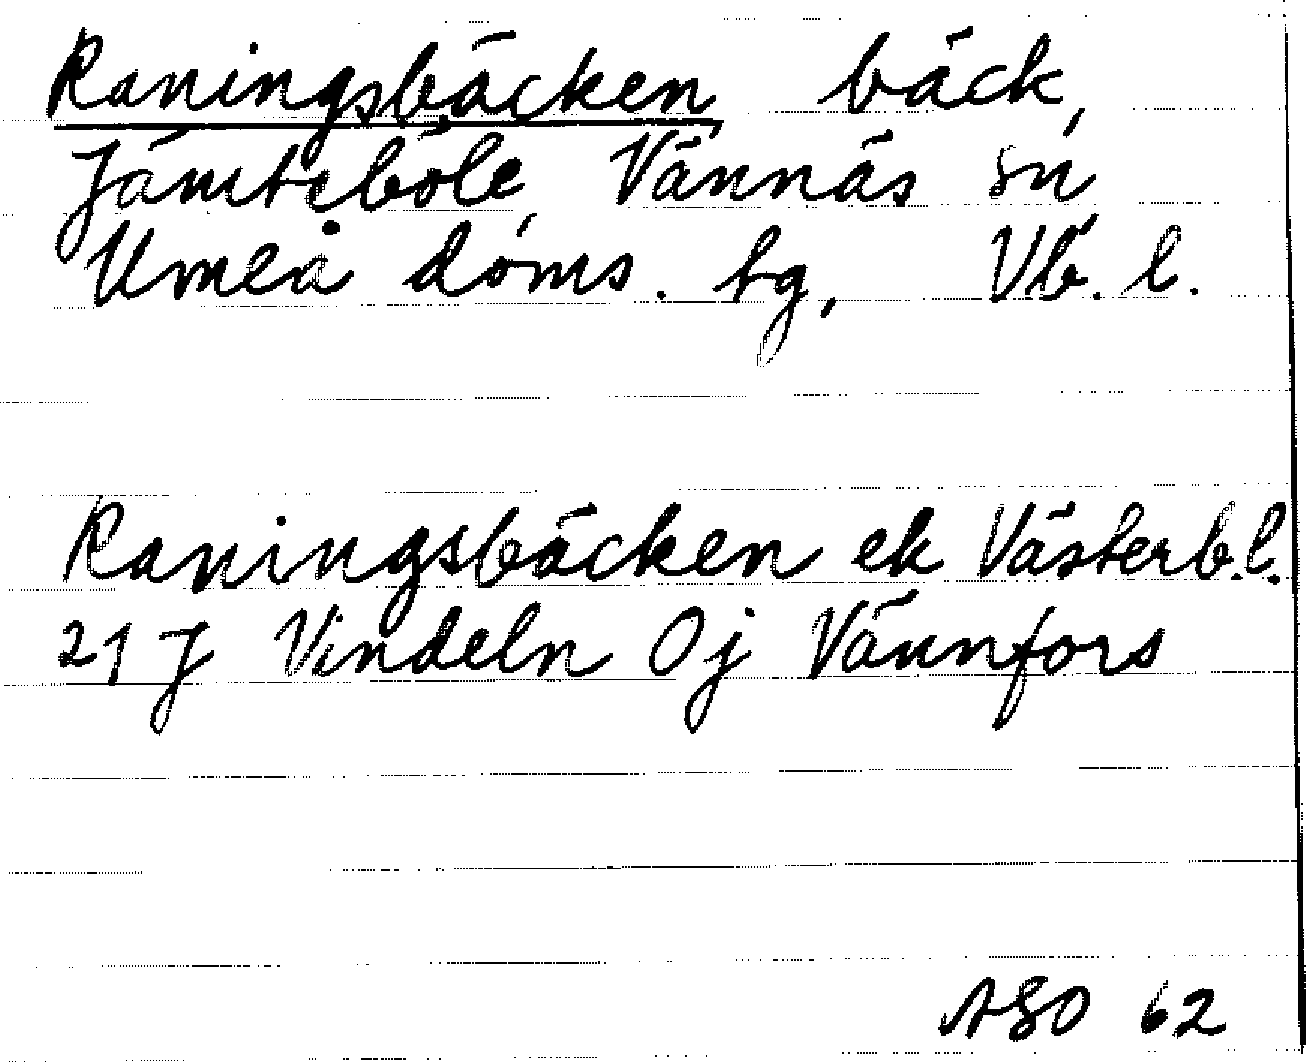 Raningsbäcken bäck,
Jämteböle, Vännäs sn
Umeå doms. tg, Vb. l.
Raningsbäcken ek Västerb.l.
21 J Vindeln Oj Vännfors
ASO 62